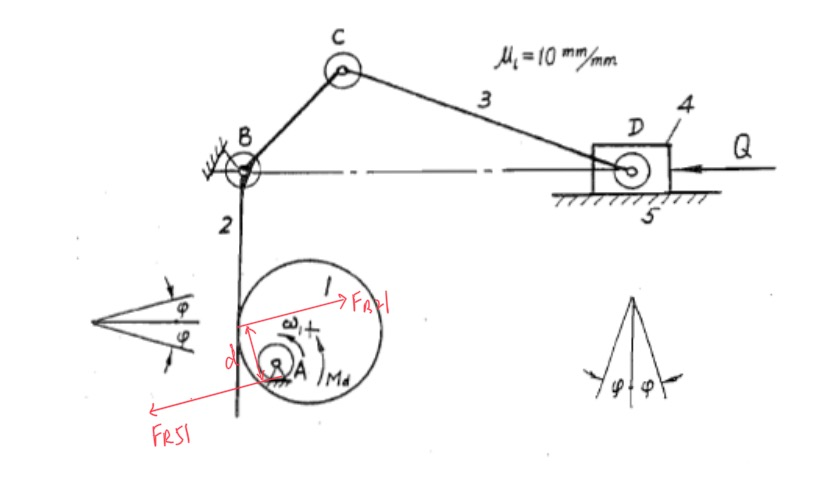 C
μ_l = 10 mm/mm
3
4
D
B
Q
5
2
1
F_R21
φ
φ
ω_1
d
A
M_d
φ
φ
F_R51